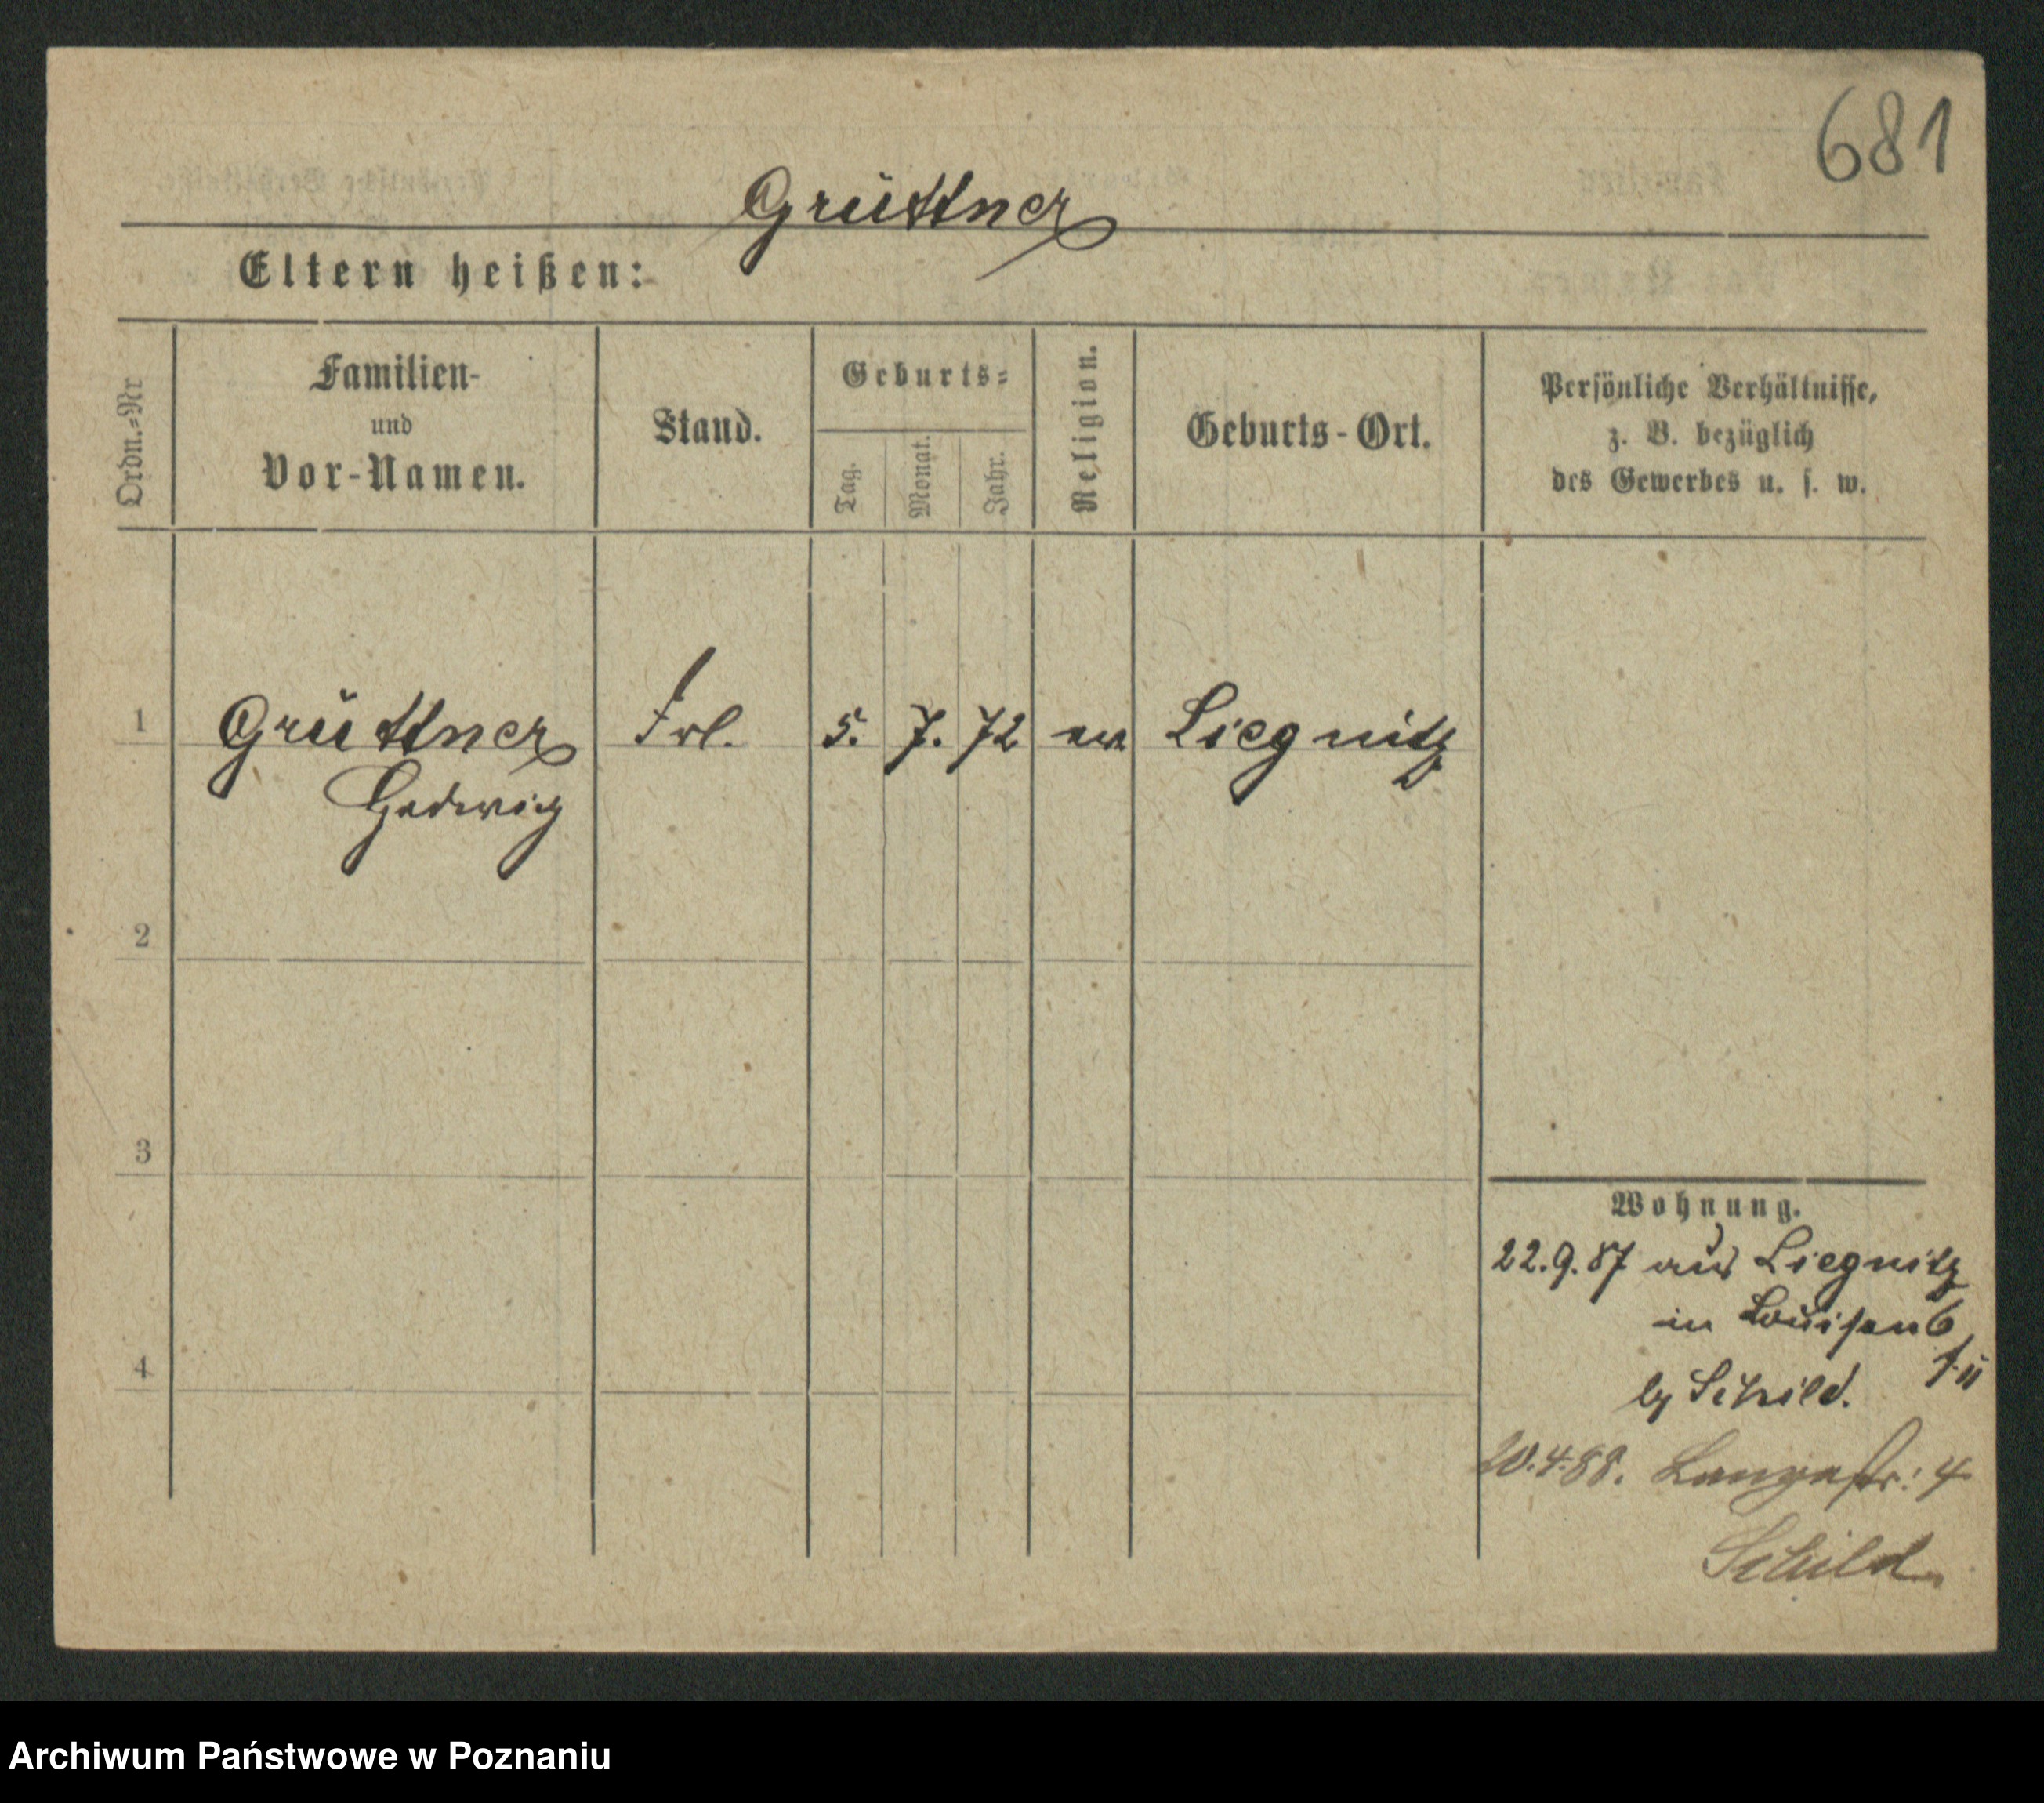 681
Grüttner
Eltern heißen:
Ordn.=Nr
Familien-
und
Vor-Namen.
Stand.
Geburts=
Tag.
Monat.
Jahr.
Religion.
Geburts-Ort.
Persönliche Verhältnisse,
z. B. bezüglich
des Gewerbes u. s. w.
1
Grüttner
Hedwig
Frl.
5.
7.
72
ev
Liegnitz
2
3
4
Wohnung.
22.9.87 aus Liegnitz
in Louisen 6
II
by Schild.
20.4.88. Langestr: 4
Schild
Archiwum Państwowe w Poznaniu